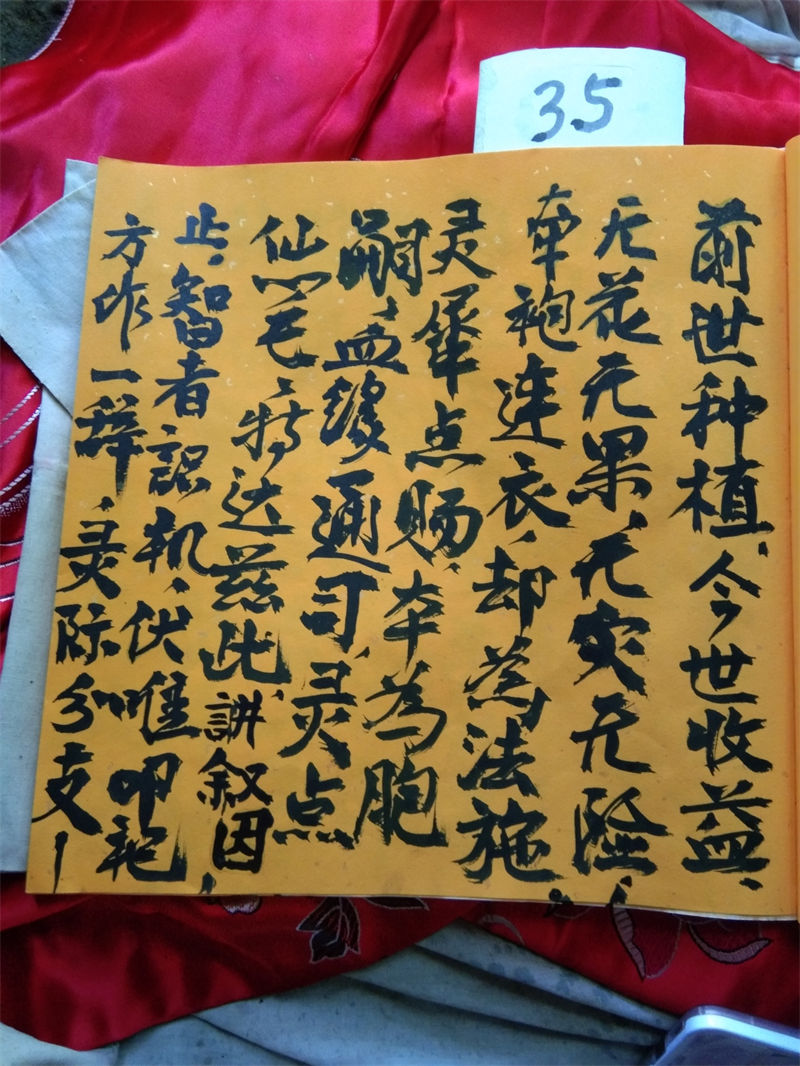 35
前世种植、今世收益、
无花无果、无灾无险、
牵袍连衣、却為法施、
灵犀点赐、本為胞
嗣、血缘通司、灵点
仙毛、转达慈此、讲叙因
止、智者認机、伏唯叩
方作一辞、灵际分支